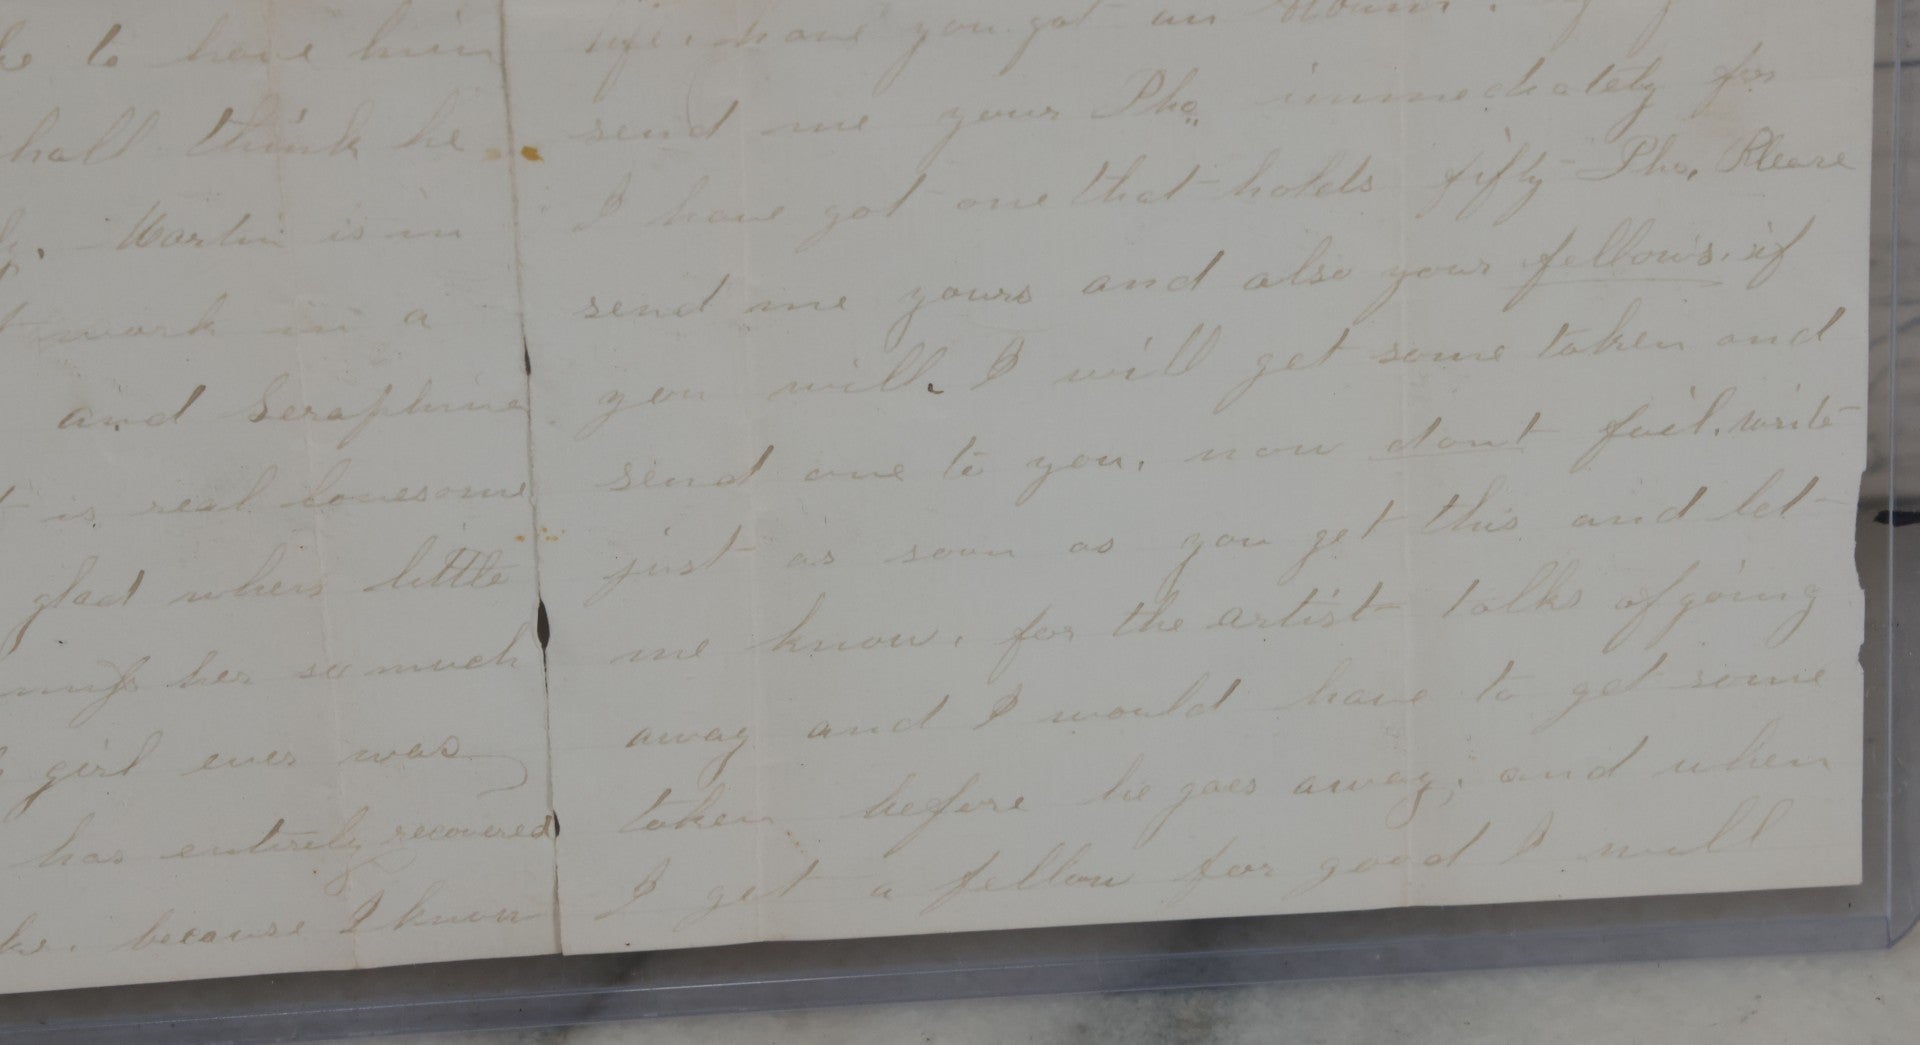 to have him
hall think he
Martin is in
work in a
and Seraphine
is real lonesome
glad when little
miss her so much
girl ever was
has entirely recovered
because I know
life, have you got an Album.
send me your Pho. immediately for
I have got one that holds fifty Pho. Please
send me yours and also your fellow's. if
you will. I will get some taken and
send one to you. now dont fail. write
just as soon as you get this and let
me know. for the artist talks of going
away and I would have to get some
taken before he goes away; and when
I get a fellow for good I will